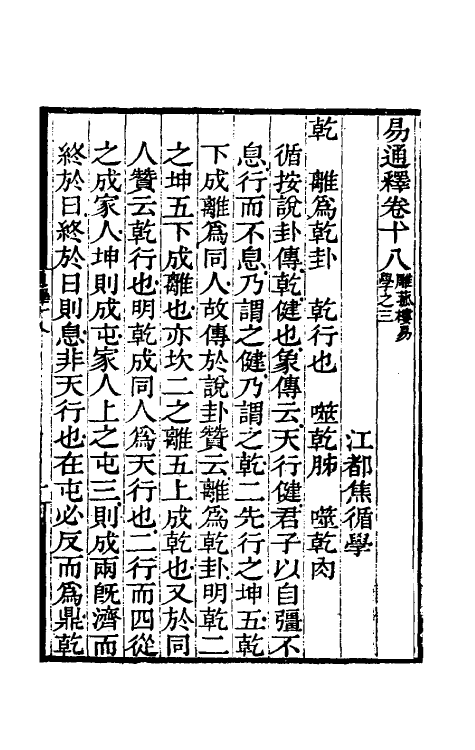 易通釋卷十八雕菰樓易學之三
江都焦循學
乾　離爲乾卦　乾行也　噬乾胏　噬乾肉
循按說卦傳乾健也象傳云天行健君子以自彊不
息行而不息乃謂之健乃謂之乾二先行之坤五乾
下成離爲同人故傳於說卦贊云離爲乾卦明乾二
之坤五下成離也亦坎二之離五上成乾也又於同
人贊云乾行也明乾成同人爲天行也二行而四從
之成家人坤則成屯家人上之屯三則成兩旣濟而
終於日終於日則息非天行也在屯必反而爲鼎乾